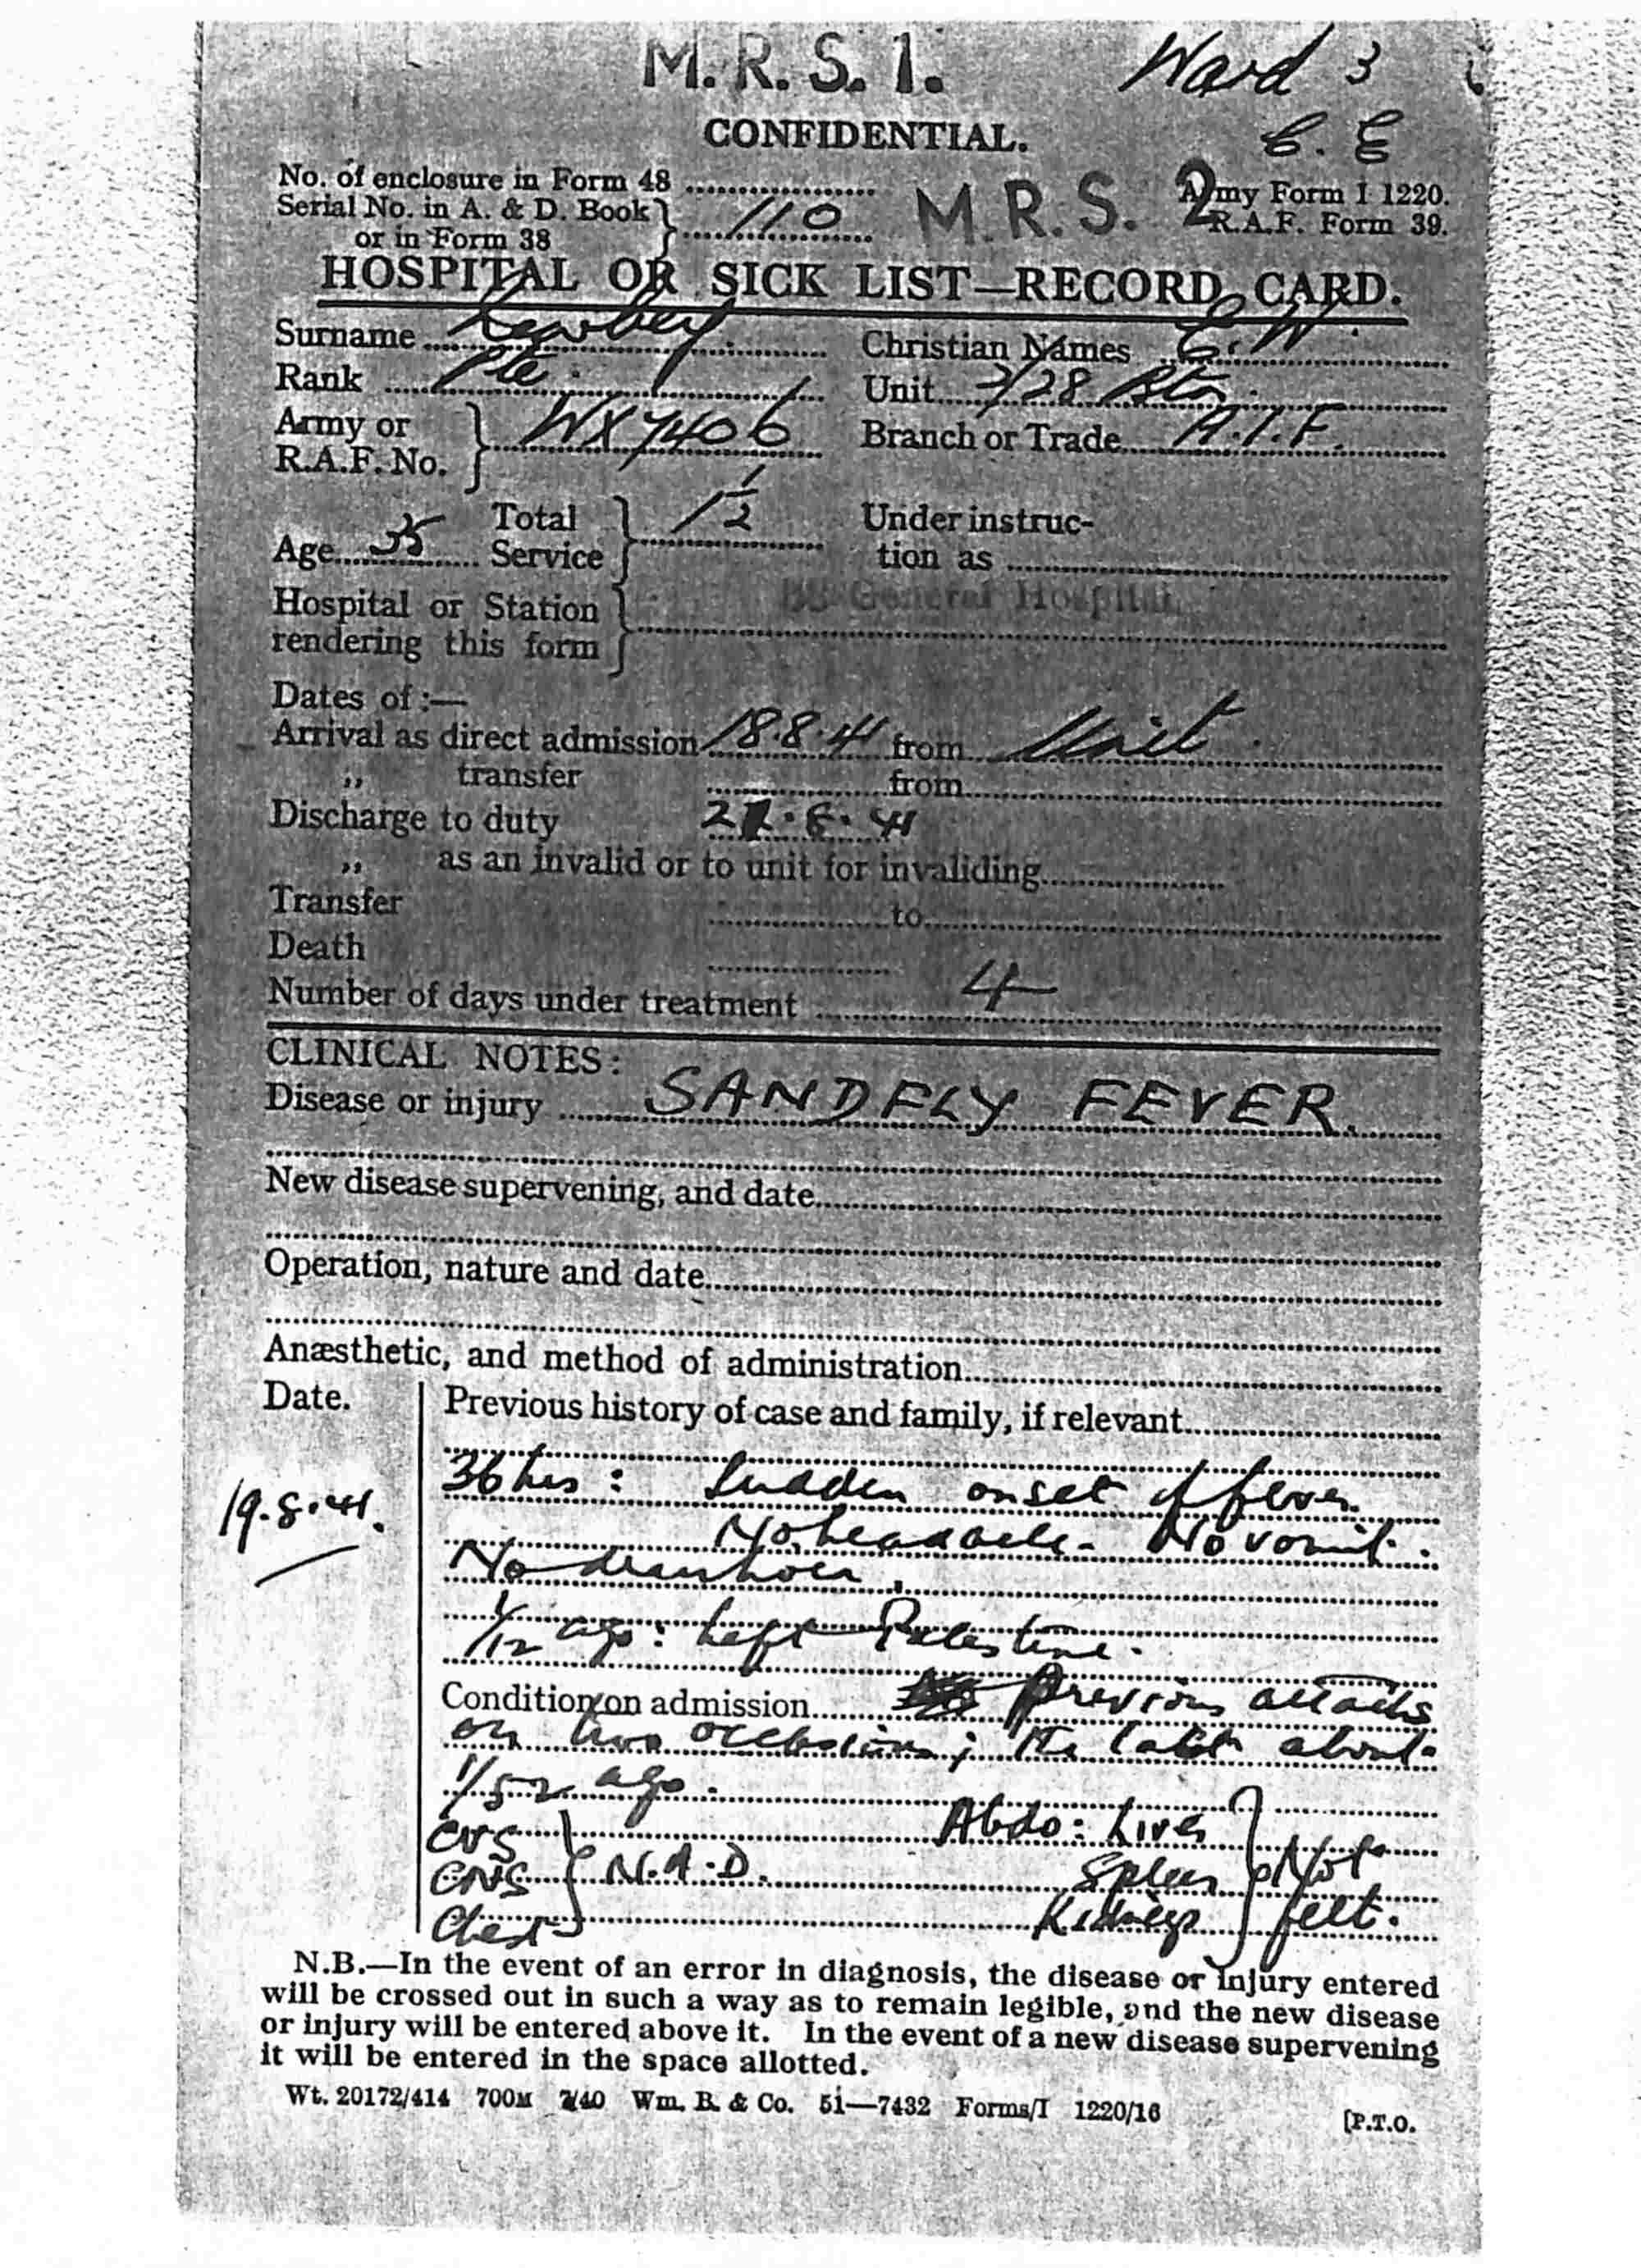 M. R. S. 1.
Ward 3
CONFIDENTIAL.
C. E
No. of enclosure in Form 48
Serial No. in A. & D. Book } 110
or in Form 38
M. R. S. 2
Army Form I 1220.
R.A.F. Form 39.
HOSPITAL OR SICK LIST—RECORD CARD.
Surname Christian Names C. W
Rank Pte. Unit 2/28 Btn.
Army or R.A.F. No. } WX7406 Branch or Trade A.I.F.
Age 35 Total Service } 1½ Under instruction as
Hospital or Station rendering this form } General Hospital
Dates of :—
Arrival as direct admission 18.8.41 from Unit
„ transfer from
Discharge to duty .8.41
„ as an invalid or to unit for invaliding
Transfer to
Death
Number of days under treatment 4
CLINICAL NOTES:
Disease or injury SANDFLY FEVER.
New disease supervening, and date
Operation, nature and date
Anæsthetic, and method of administration
Date. Previous history of case and family, if relevant
19.8.41. 36 hrs : Sudden onset of fever.
No headache. No vomit.
No diarrhoea.
1/12 ago: Left Palestine.
Condition on admission Previous attacks
on two occasions; the last about
1/52 ago.
CVS
CNS } N.A.D.
Chest
Abdo: Liver
Spleen } Not
Kidneys felt.
N.B.—In the event of an error in diagnosis, the disease or injury entered
will be crossed out in such a way as to remain legible, and the new disease
or injury will be entered above it. In the event of a new disease supervening
it will be entered in the space allotted.
Wt. 20172/414 700M 7/40 Wm. B. & Co. 51—7432 Forms/I 1220/16
[P.T.O.